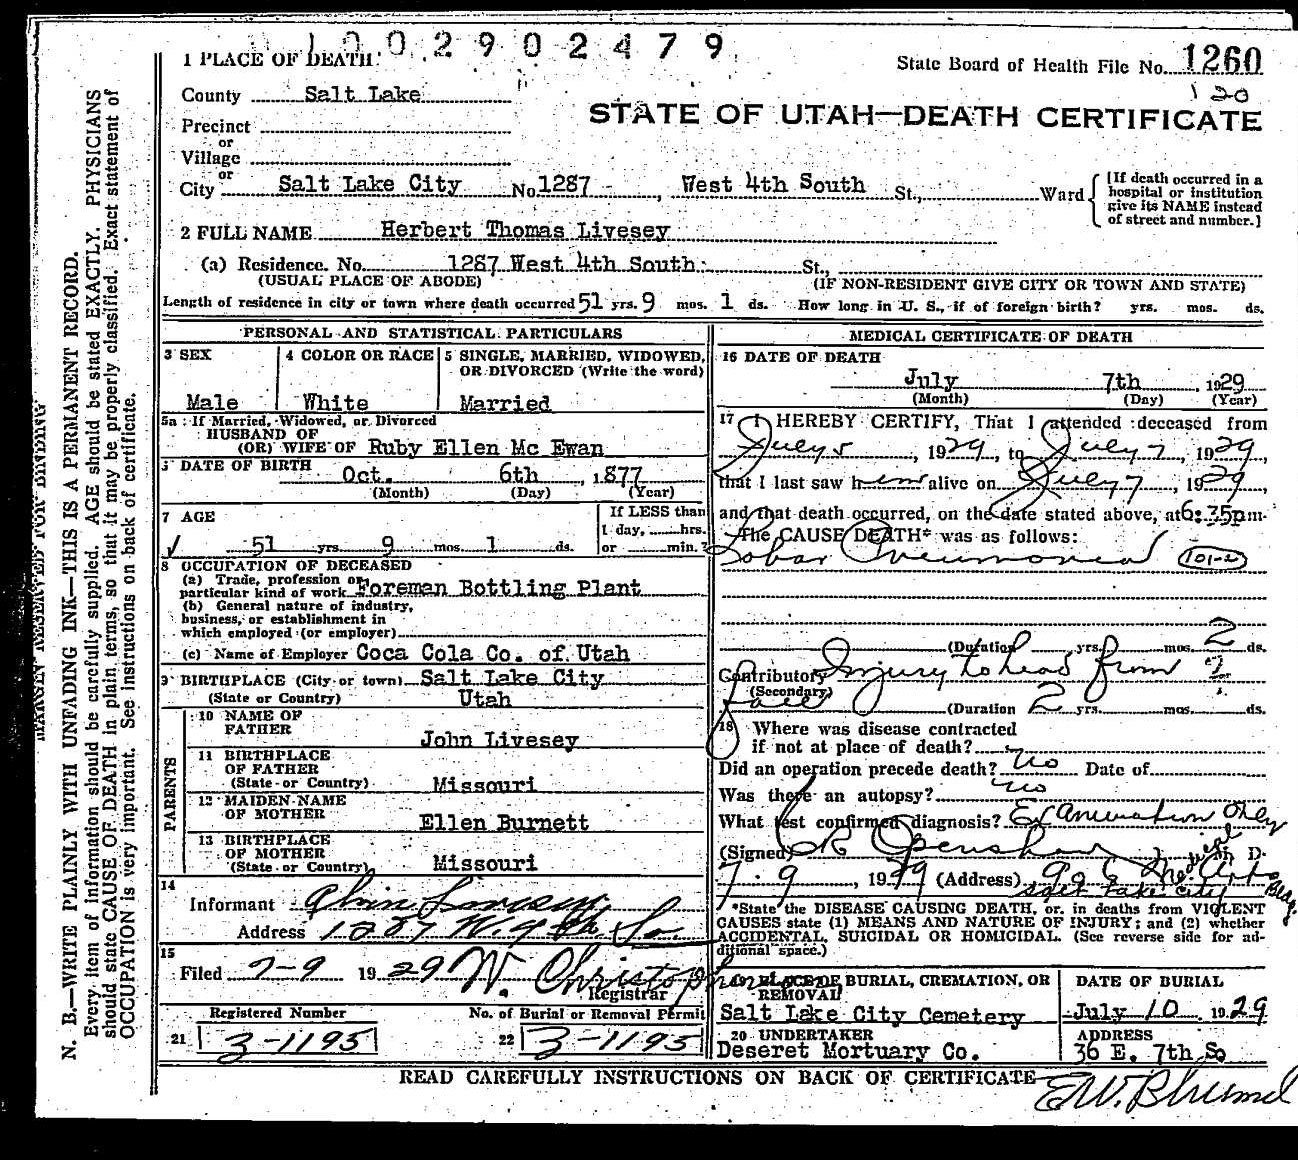 1002902479
1 PLACE OF DEATH
State Board of Health File No. 1260
120
County Salt Lake
STATE OF UTAH—DEATH CERTIFICATE
Precinct
or
Village
or
City Salt Lake City No 1287 West 4th South St., Ward
[If death occurred in a hospital or institution give its NAME instead of street and number.]
2 FULL NAME Herbert Thomas Livesey
(a) Residence. No. 1287 West 4th South St.,
(USUAL PLACE OF ABODE) (IF NON-RESIDENT GIVE CITY OR TOWN AND STATE)
Length of residence in city or town where death occurred 51 yrs. 9 mos. 1 ds. How long in U. S., if of foreign birth? yrs. mos. ds.
PERSONAL AND STATISTICAL PARTICULARS
3 SEX
Male
4 COLOR OR RACE
White
5 SINGLE, MARRIED, WIDOWED,
OR DIVORCED (Write the word)
Married
5a If Married, Widowed, or Divorced
HUSBAND OF
(OR) WIFE OF Ruby Ellen Mc Ewan
DATE OF BIRTH Oct. 6th, 1877
(Month) (Day) (Year)
7 AGE
51 yrs. 9 mos. 1 ds.
If LESS than
1 day, hrs.
or min.?
8 OCCUPATION OF DECEASED
(a) Trade, profession or
particular kind of work Foreman Bottling Plant
(b) General nature of industry,
business, or establishment in
which employed (or employer)
(c) Name of Employer Coca Cola Co. of Utah
9 BIRTHPLACE (City or town) Salt Lake City
(State or Country) Utah
PARENTS
10 NAME OF
FATHER
John Livesey
11 BIRTHPLACE
OF FATHER
(State or Country) Missouri
12 MAIDEN NAME
OF MOTHER
Ellen Burnett
13 BIRTHPLACE
OF MOTHER
(State or Country) Missouri
14
Informant
Address 1287 W. 4th So
15
Filed 7-9 1929 W. Christopherson
Registrar
Registered Number
21 3-1195
No. of Burial or Removal Permit
22 3-1195
MEDICAL CERTIFICATE OF DEATH
16 DATE OF DEATH
July 7th, 1929
(Month) (Day) (Year)
17 I HEREBY CERTIFY, That I attended deceased from
July 5, 1929, to July 7, 1929,
that I last saw him alive on July 7, 1929,
and that death occurred, on the date stated above, at 6:35pm.
The CAUSE DEATH* was as follows:
Lobar Pneumonia 101-2
(Duration yrs. mos. 2 ds.
Contributory Injury to head from
(Secondary)
fall (Duration 2 yrs. mos. ds.
18 Where was disease contracted
if not at place of death? no
Did an operation precede death? no Date of
Was there an autopsy? no
What test confirmed diagnosis? Examination Only
(Signed) Openshaw M. D.
7-9, 1929 (Address) Medical Arts Bldg.
Salt Lake City
*State the DISEASE CAUSING DEATH, or, in deaths from VIOLENT
CAUSES state (1) MEANS AND NATURE OF INJURY; and (2) whether
ACCIDENTAL, SUICIDAL OR HOMICIDAL. (See reverse side for ad-
ditional space.)
19 PLACE OF BURIAL, CREMATION, OR
REMOVAL
Salt Lake City Cemetery
DATE OF BURIAL
July 10 1929
20 UNDERTAKER
Deseret Mortuary Co.
ADDRESS
36 E. 7th So
READ CAREFULLY INSTRUCTIONS ON BACK OF CERTIFICATE
MARGIN RESERVED FOR BINDING
N. B.—WRITE PLAINLY WITH UNFADING INK—THIS IS A PERMANENT RECORD.
Every item of information should be carefully supplied. AGE should be stated EXACTLY. PHYSICIANS
should state CAUSE OF DEATH in plain terms, so that it may be properly classified. Exact statement of
OCCUPATION is very important. See instructions on back of certificate.